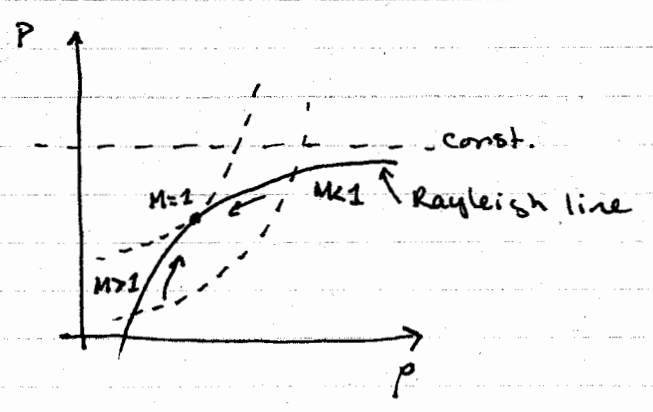 P
const.
M=1
M<1
Rayleigh line
M>1
ρ